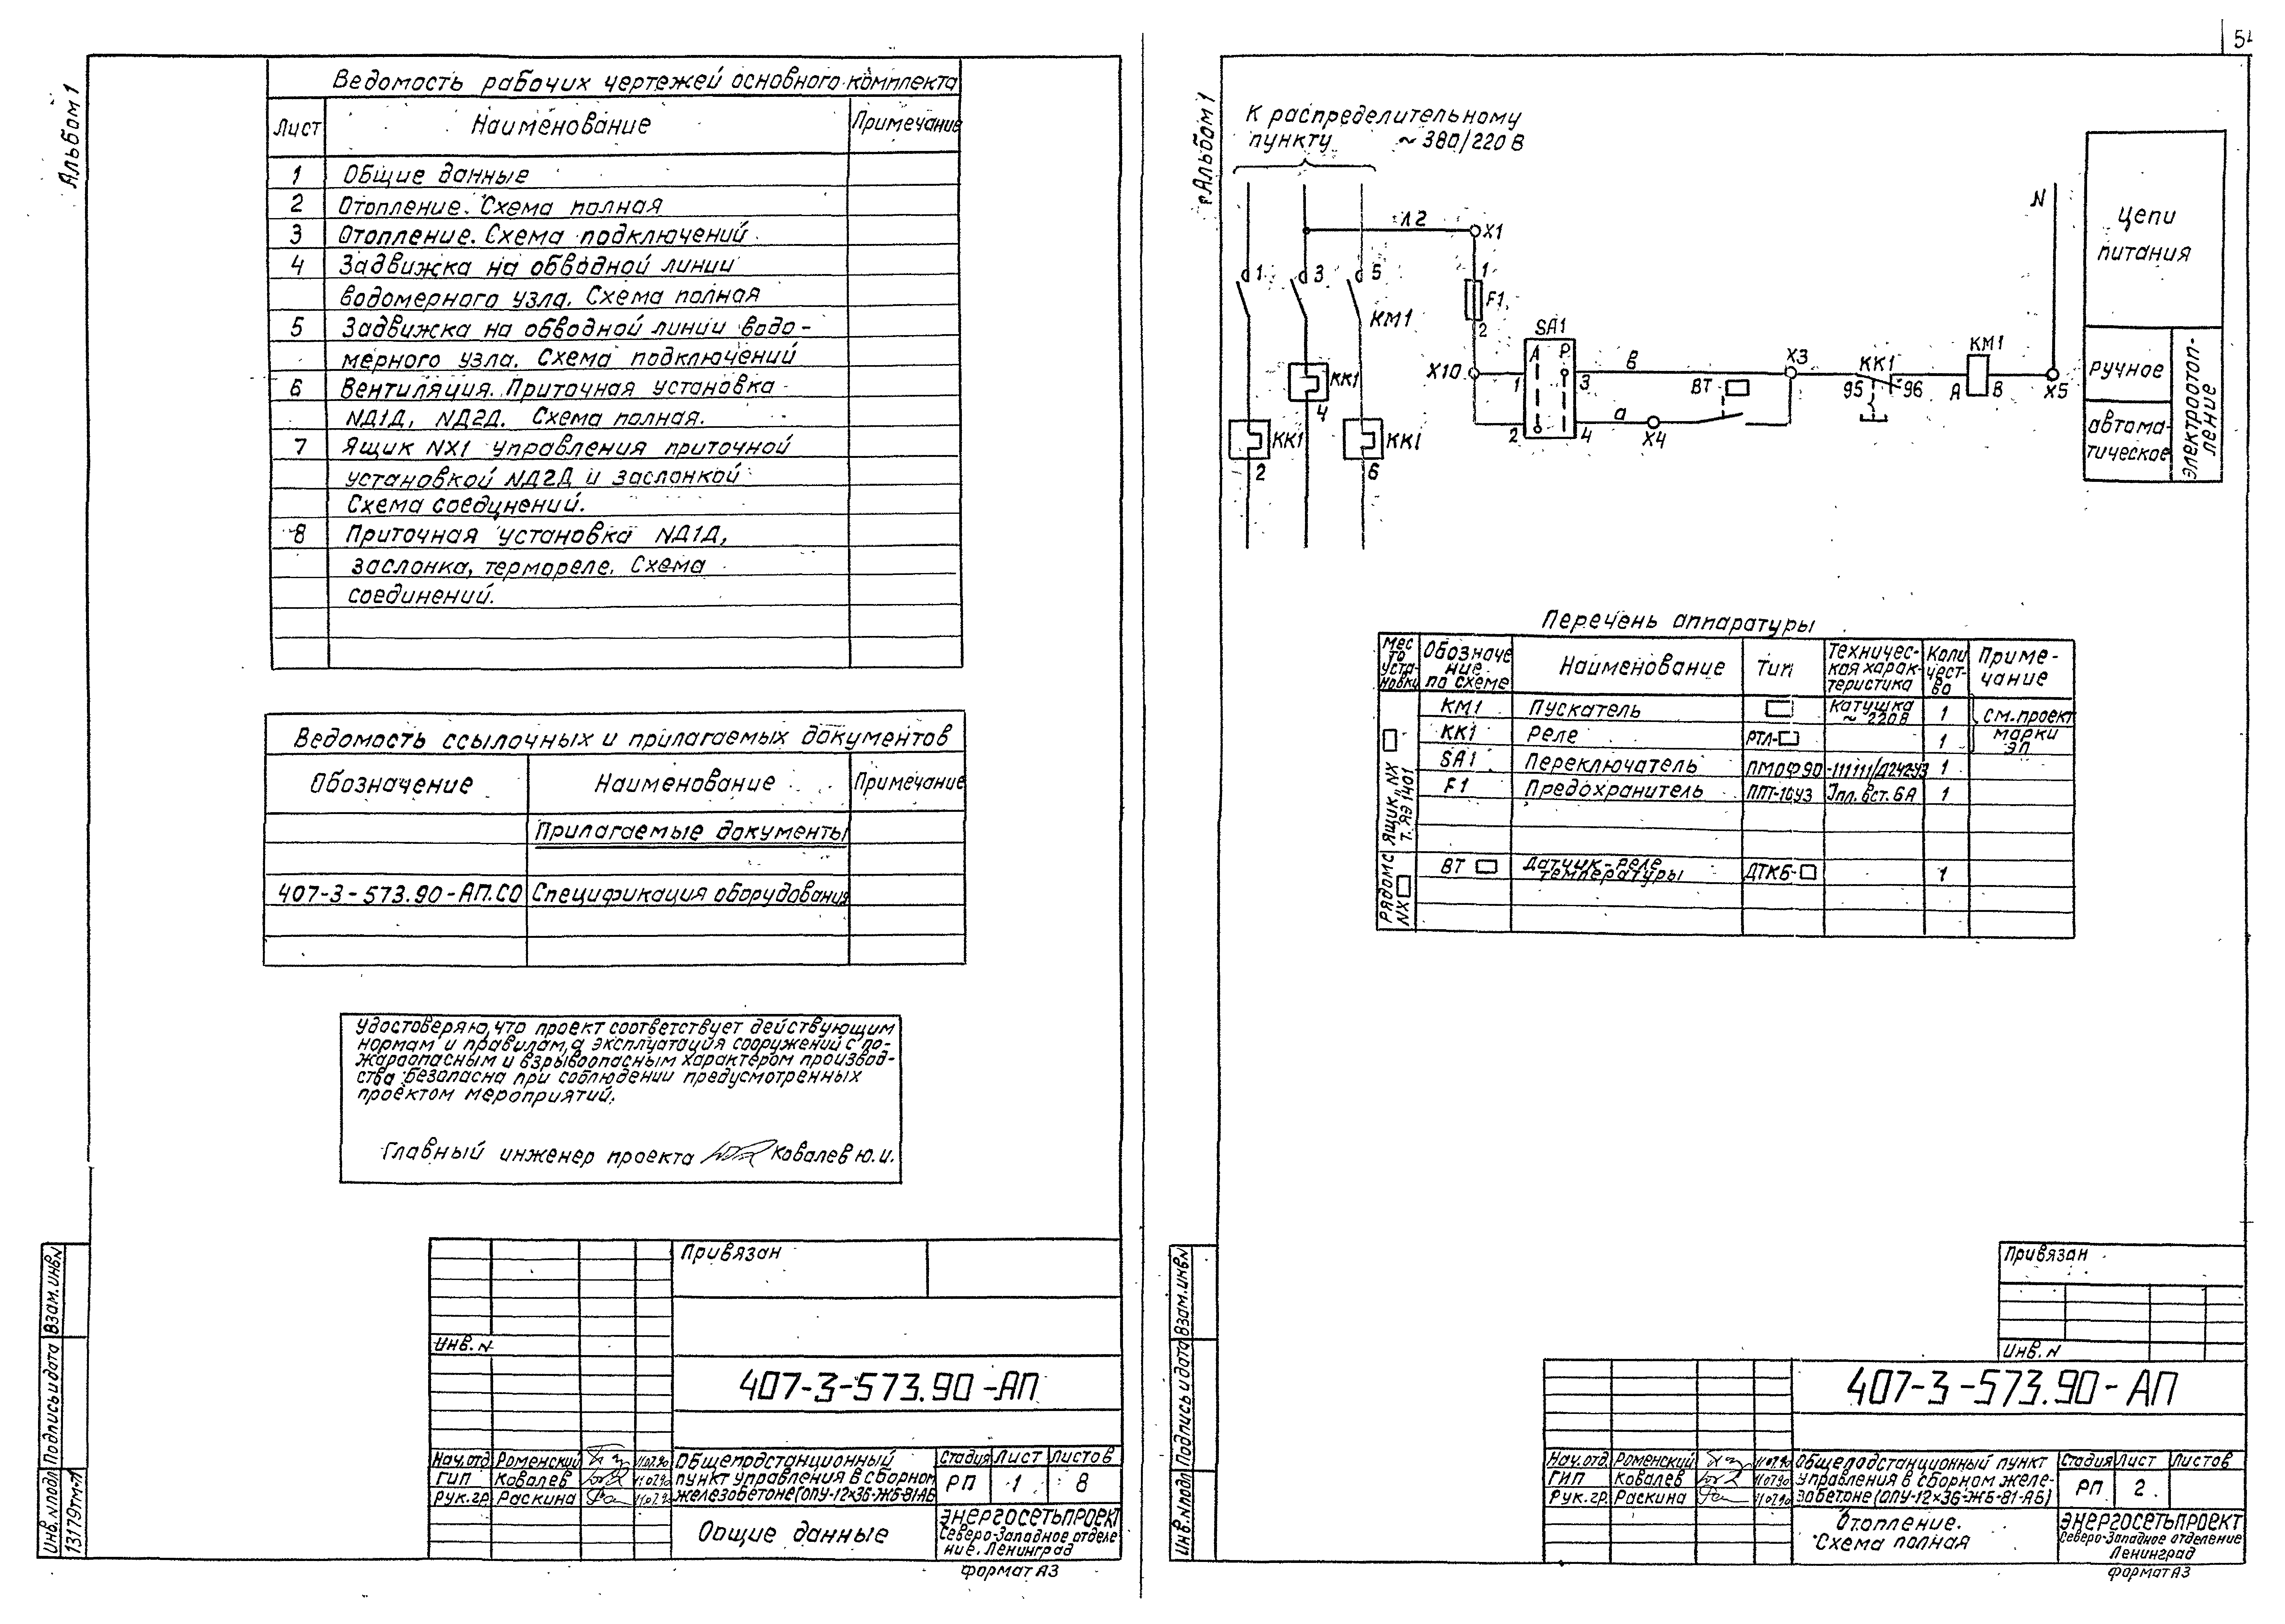 Альбом 1
Ведомость рабочих чертежей основного комплекта
Лист Наименование Примечание
1 Общие данные
2 Отопление. Схема полная
3 Отопление. Схема подключений
4 Задвижка на обводной линии
водомерного узла. Схема полная
5 Задвижка на обводной линии водо-
мерного узла. Схема подключений
6 Вентиляция. Приточная установка
NД1Д, NД2Д. Схема полная.
7 Ящик NX1 управления приточной
установкой NД2Д и заслонкой
Схема соединений.
8 Приточная установка NД1Д,
заслонка, термореле. Схема
соединений.
Ведомость ссылочных и прилагаемых документов
Обозначение Наименование Примечание
Прилагаемые документы
407-3-573.90-АП.СО Спецификация оборудования
Удостоверяю, что проект соответствует действующим
нормам и правилам, а эксплуатация сооружений с по-
жароопасным и взрывоопасным характером производ-
ства безопасна при соблюдении предусмотренных
проектом мероприятий.
Главный инженер проекта Ковалев Ю.И.
Привязан
Инв. N
407-3-573.90-АП
Нач.отд Роменский 11.07.90
ГИП Ковалев 11.07.90
Рук.гр. Раскина 11.07.90
Общеподстанционный
пункт управления в сборном
железобетоне (ОПУ-12×36-ЖБ-81-АБ
Стадия Лист Листов
РП 1 8
Общие данные
ЭНЕРГОСЕТЬПРОЕКТ
Северо-Западное отделе-
ние. Ленинград
формат А3
Взам.инв.N
Подпись и дата
Инв.N подл
13179тм-т1
Альбом 1
К распределительному
пункту ~380/220 В
1 3 5
КМ1
КК1
4
КК1
2
КК1
6
Л2
X1
1
F1
2
X10
SA1
А Р
1 3
2 4
в
а
X4
ВТ
X3
КК1
95 96
КМ1
А В
N
X5
Цепи
питания
ручное
автома-
тическое
Электротоп-
ление
Перечень аппаратуры
Место установки
Обозначение по схеме
Наименование
Тип
Техничес-
кая харак-
теристика
Коли
чест-
во
Приме-
чание
Ящик „NX
т. ЯЭ1401
КМ1 Пускатель Катушка ~220В 1 см. проект
КК1 Реле РТЛ- 1 марки ЭП
SA1 Переключатель ПМОФ90-111111/Д242У3 1
F1 Предохранитель ППТ-10У3 Iпл. вст. 6А 1
Рядом с
NX
ВТ Датчик-реле температуры ДТКБ- 1
Привязан
Инв. N
407-3-573.90-АП
Нач.отд. Роменский 11.07.90
ГИП Ковалев 11.07.90
Рук.гр. Раскина 11.07.90
Общеподстанционный пункт
управления в сборном желе-
зобетоне (ОПУ-12×36-ЖБ-81-АБ)
Стадия Лист Листов
РП 2
Отопление.
Схема полная
ЭНЕРГОСЕТЬПРОЕКТ
Северо-Западное отделение
Ленинград
формат А3
Взам.инв.N
Подпись и дата
Инв.N подл